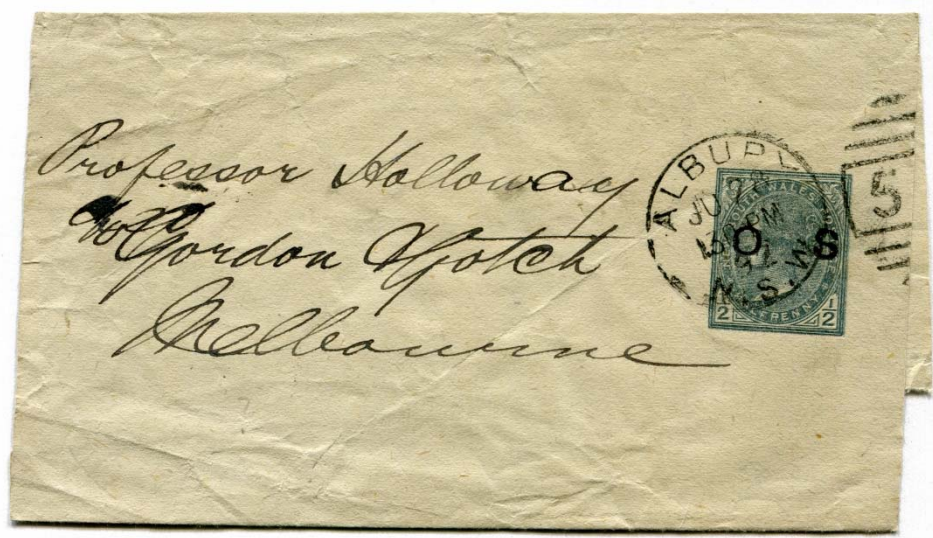 Professor Holloway
c/o Gordon & Gotch
Melbourne
ALBURY
JU 28
PM
N.S.W
5
SOUTH WALES
O S
HALFPENNY
1/2 1/2